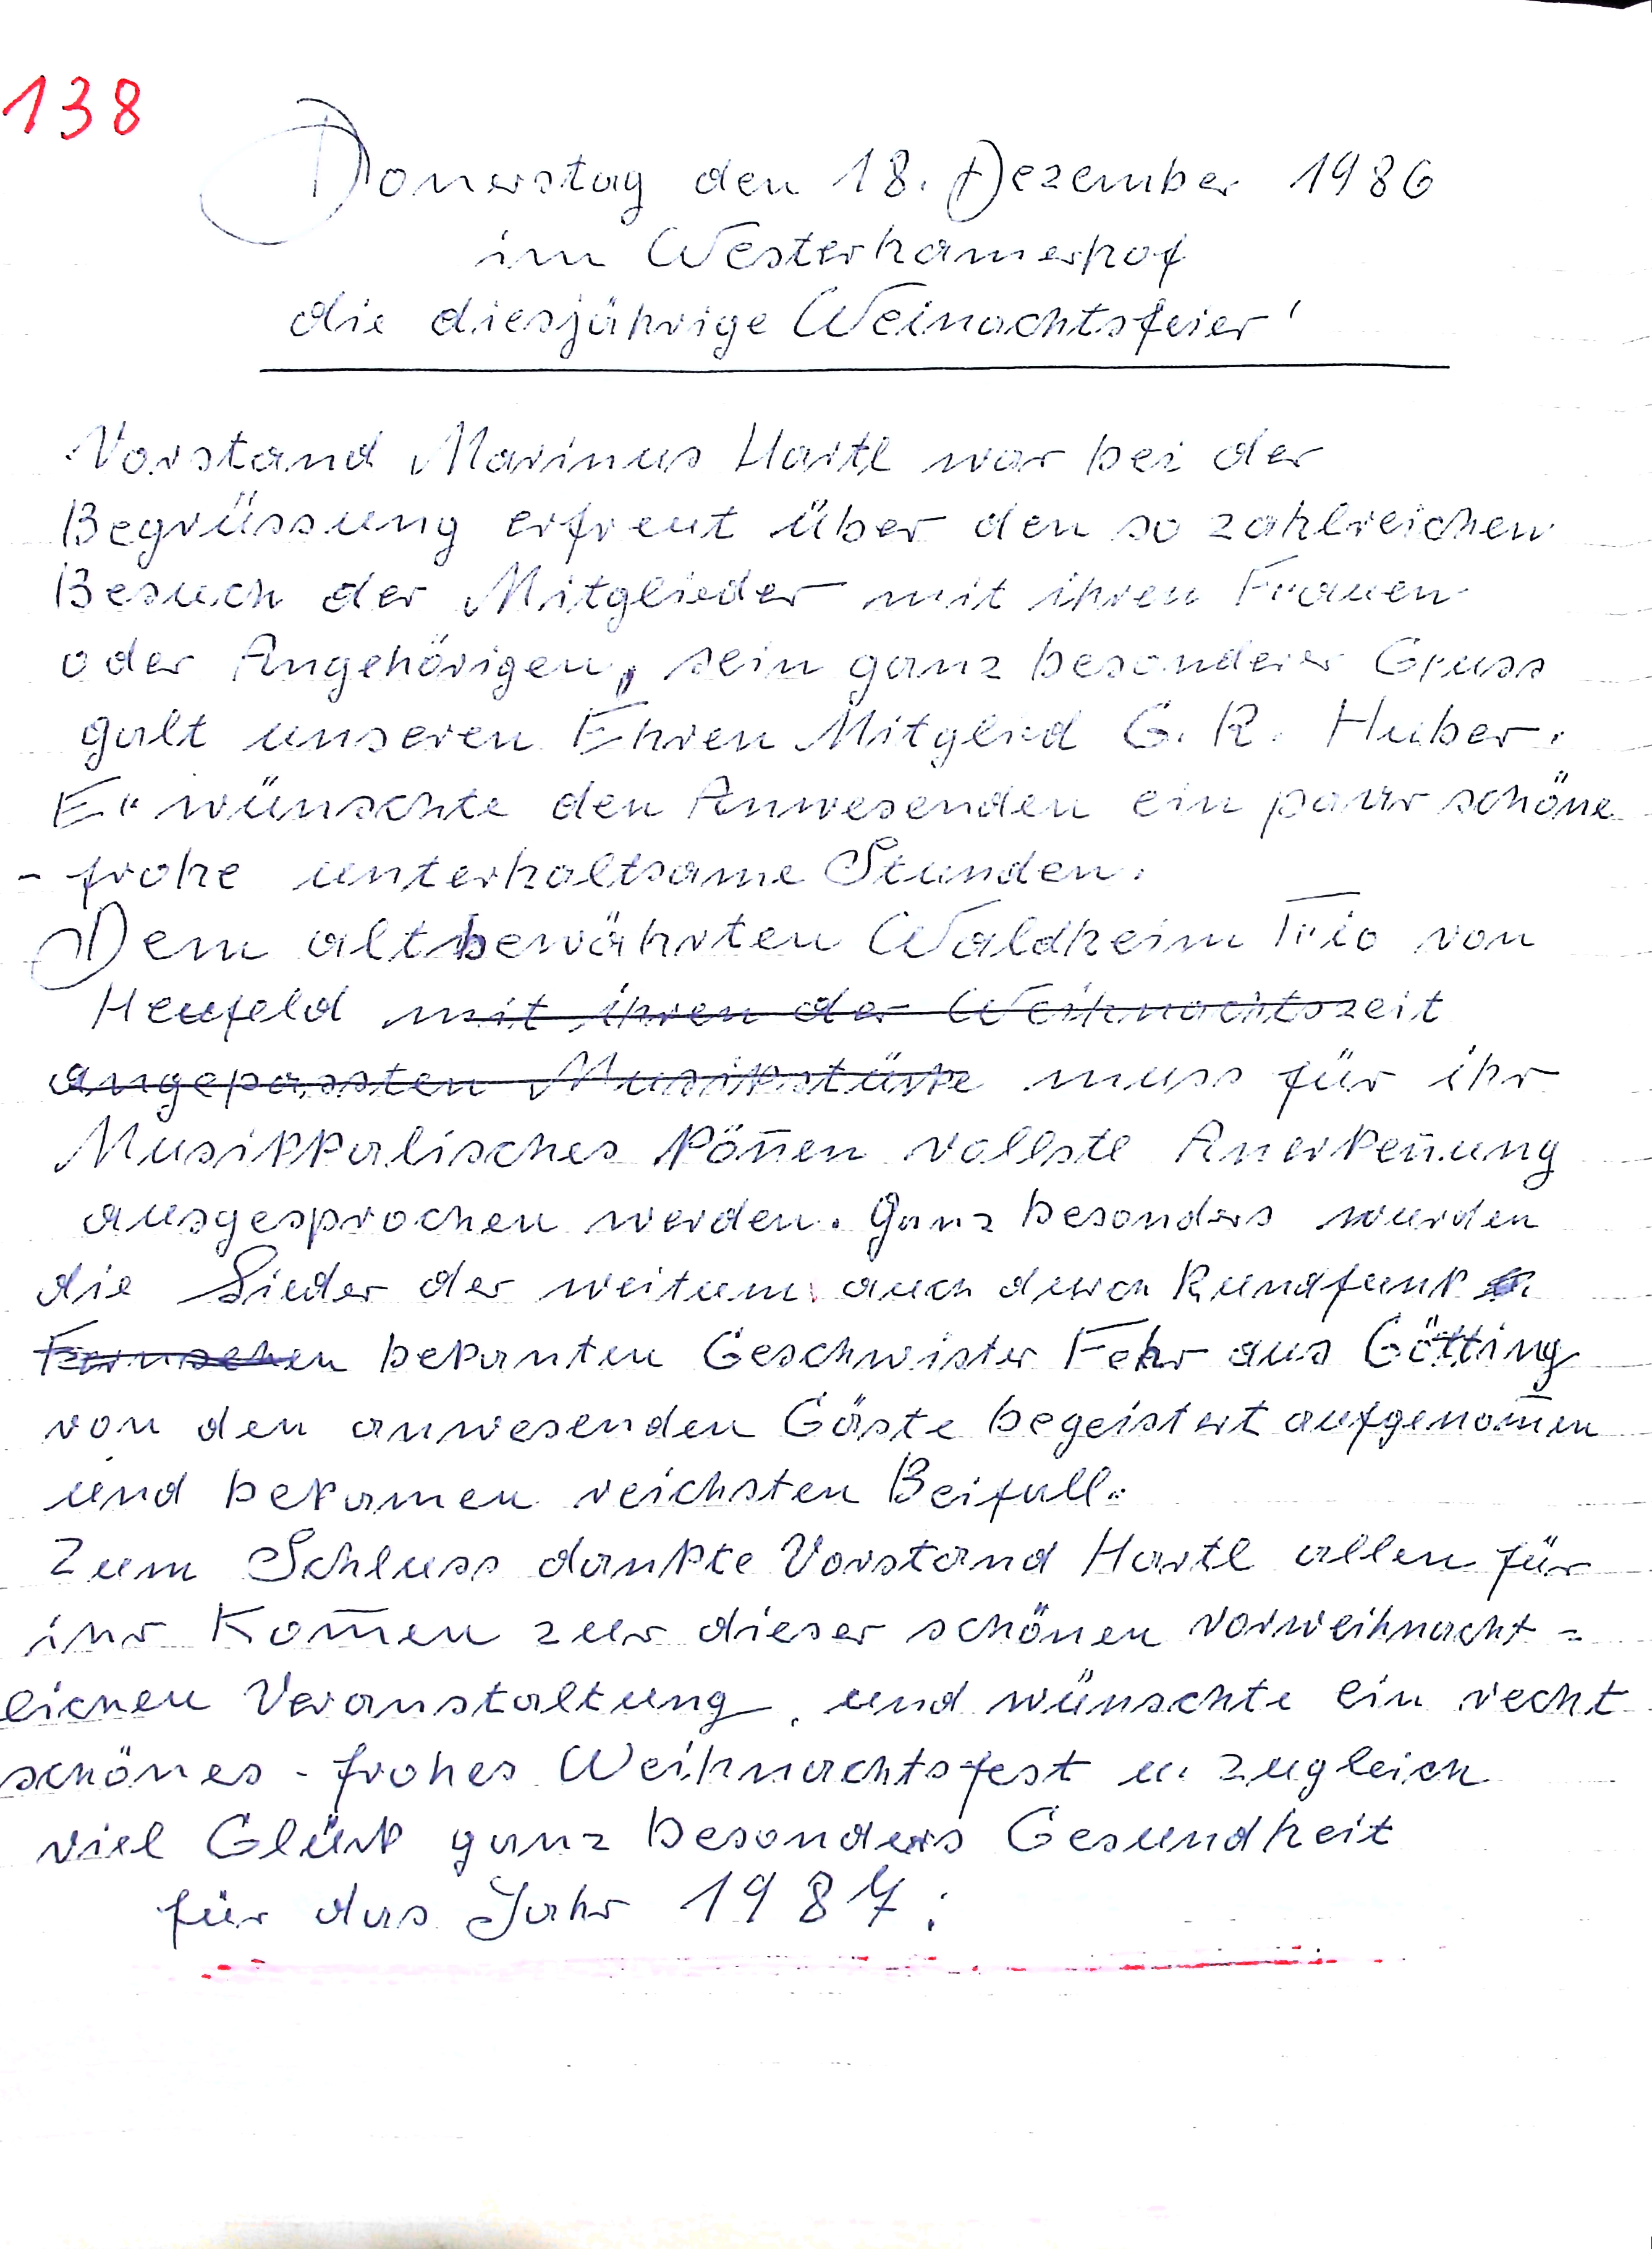 138
Donerstag den 18. Dezember 1986
im Westerhamerhof
die diesjährige Weinachtsfeier'
Vorstand Marinus Hartl war bei der
Begrüssung erfreut über den so zahlreichen
Besuch der Mitglieder mit ihren Frauen
oder Angehörigen, sein ganz besonderer Gruss
galt unseren Ehren Mitglied G. R. Huber.
Er wünschte den Anwesenden ein paar schöne
- frohe unterhaltsame Stunden.
Dem altbewährten Waldheim Trio von
Heufeld mit ihren der Weihnachtszeit
angepassten Musikstücke muss für ihr
Musikkalisches kön̄en vollste Anerken̄ung
ausgesprochen werden. Ganz besonders wurden
die Lieder der weitum auch durch Rundfunk
Fernsehen bekanten Geschwister Fehr aus Götting
von den anwesenden Gäste begeistert aufgenom̄en
und bekamen reichsten Beifall.
Zum Schluss dankte Vorstand Hartl allen für
ihr Kom̄en zur dieser schönen vorweihnacht=
lichen Veranstaltung, und wünschte ein recht
schönes - frohes Weihnachtsfest u. zugleich
viel Glück ganz besonders Gesundheit
für das Jahr 1987: